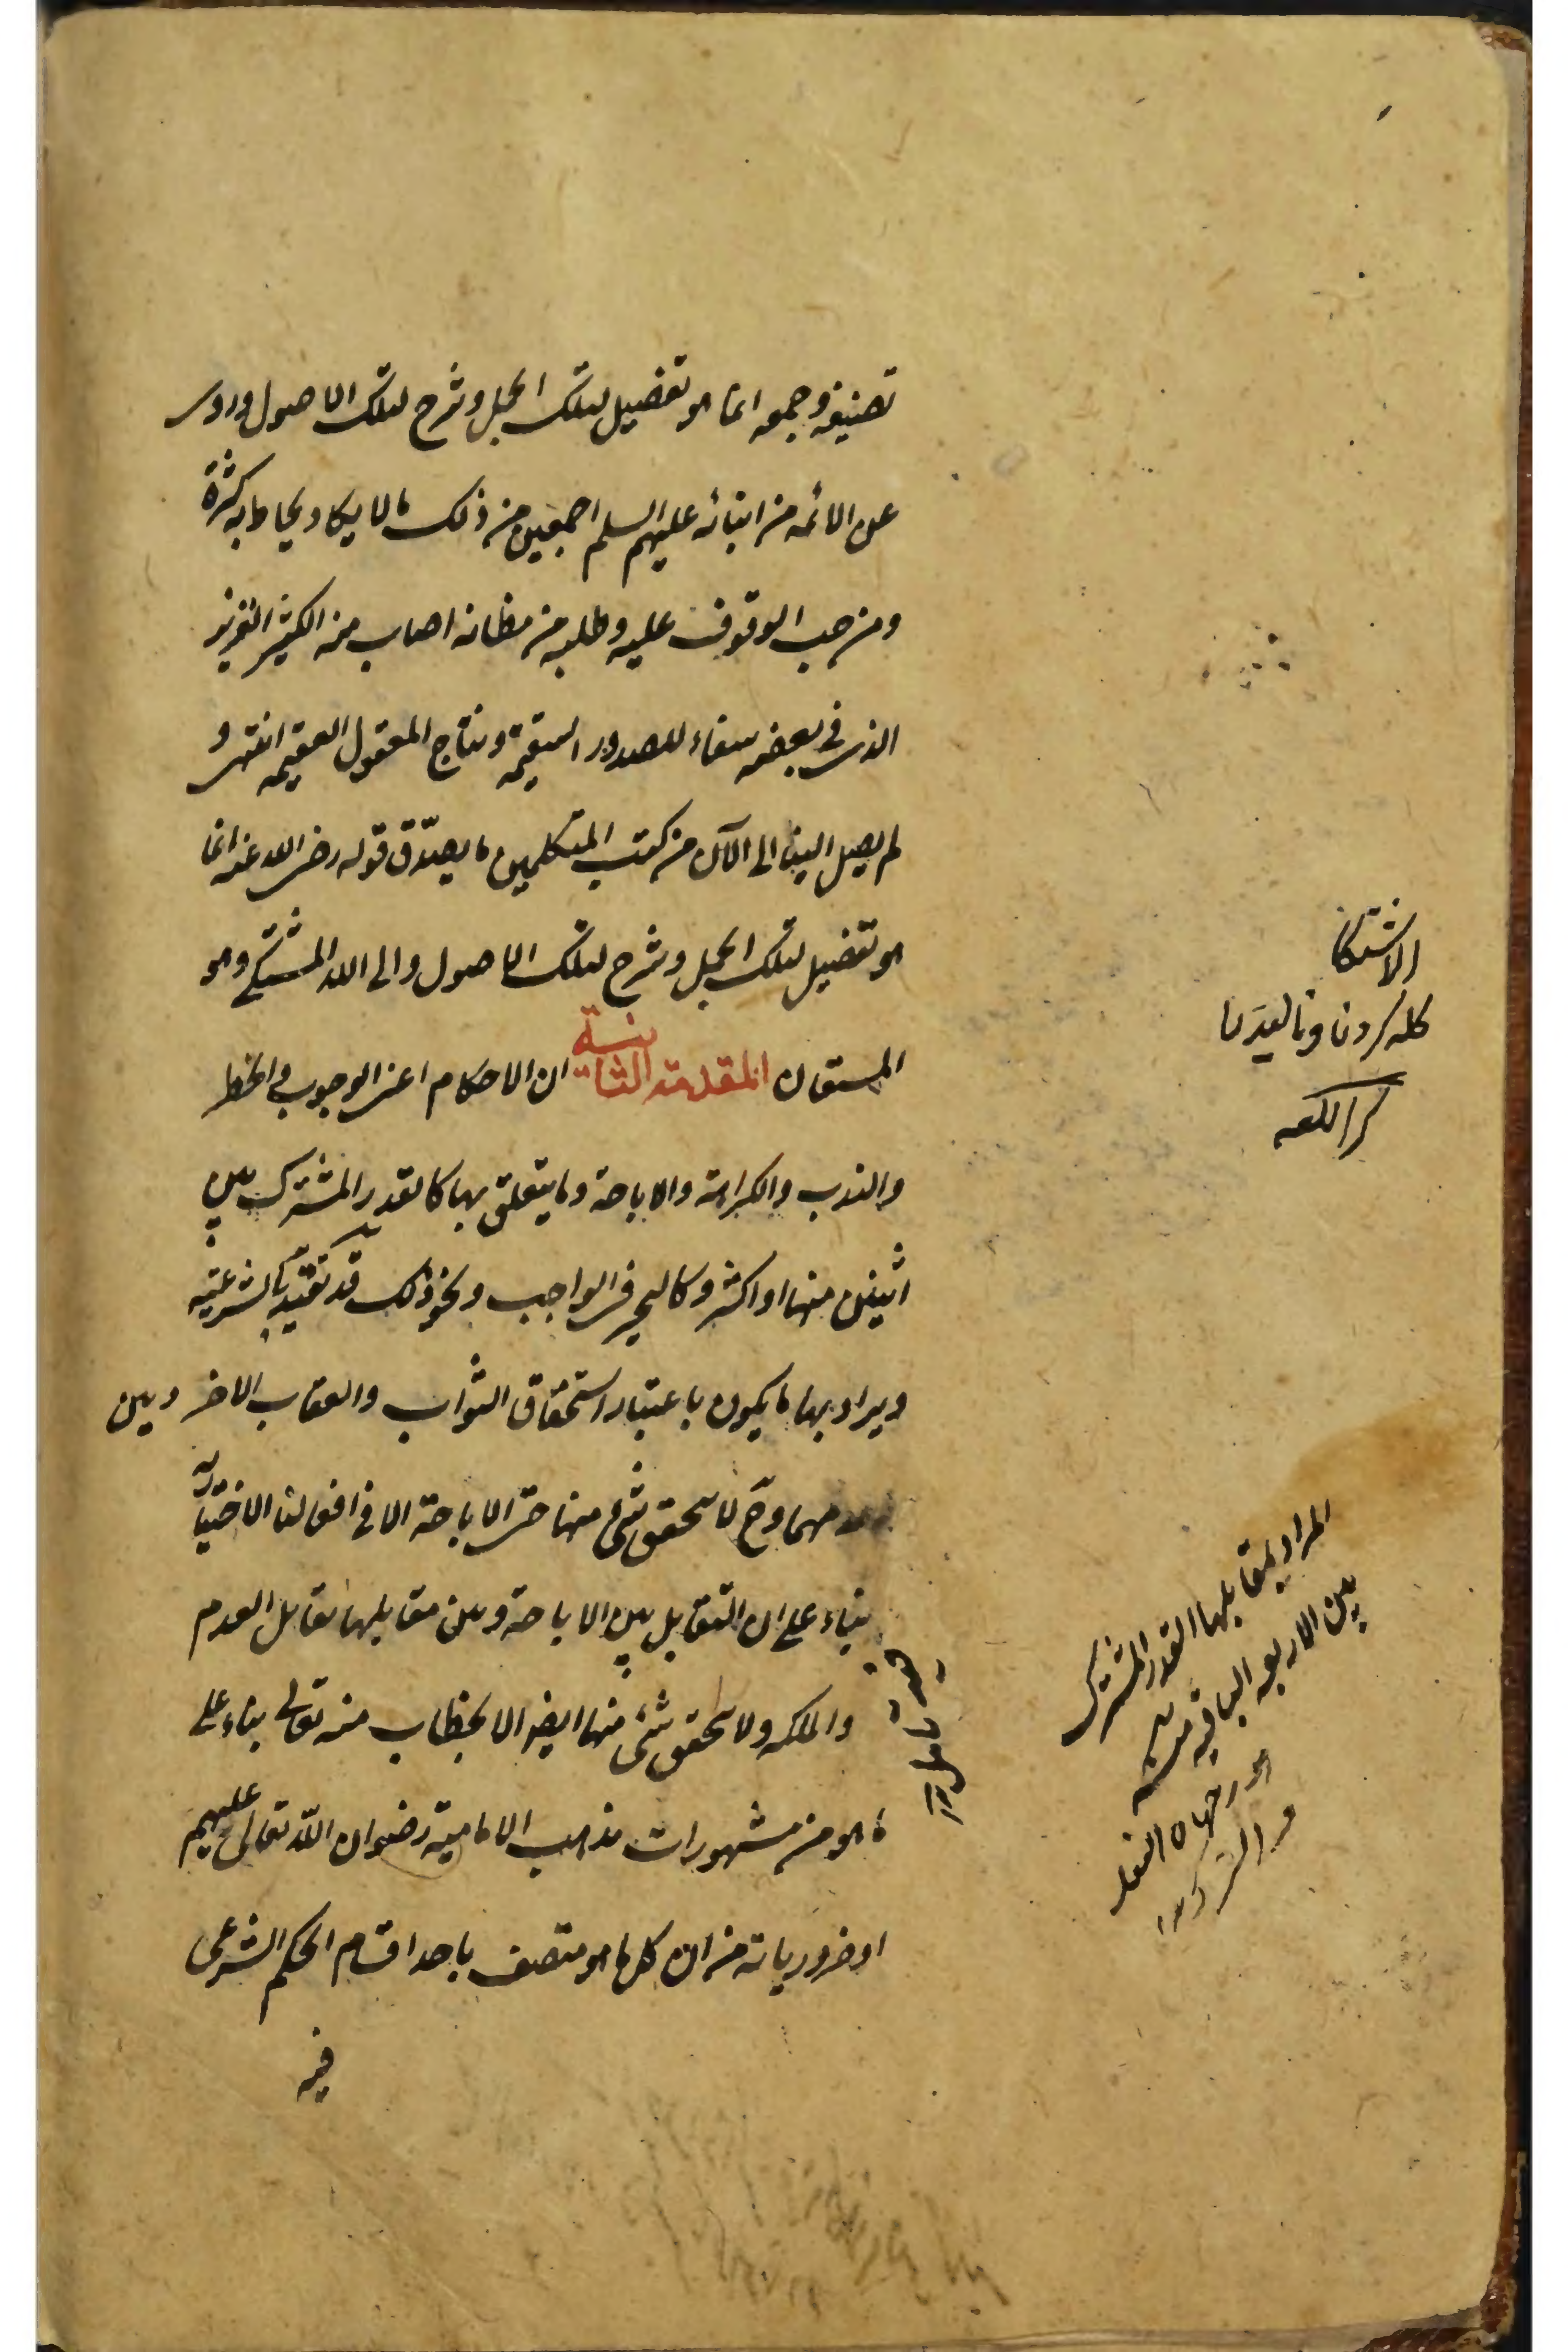 تصنيفه وجمعه انما هو تفضيل لتلك الجمل وشرح لتلك الاصول وروى
عن الائمه من ابنائه عليهم السلم اجمعين من ذلك ما لا يكاد يحاط به كثرة
ومن احب الوقوف عليه وطلبه من مظانه اصاب منه الكثير الغزير
الذى فى بعضه شفاء للصدور السقيمة ونتاج العقول العقيمه انتهى و
لم يصل الينا الى الآن من كتب المتكلمين ما يصدّق قوله رضى الله عنه انما
هو تفضيل لتلك الجمل وشرح لتلك الاصول والى الله المشتكى وهو
المستعان المقدمة الثانية ان الاحكام اعنى الوجوب والحظر
والندب والكراهة والاباحة وما يتعلق بها كالقدر المشترك بين
اثنين منها او اكثر وكالتخيير فى الواجب ونحو ذلك قد تقيّد بالشرعية
ويراد بها ما يكون باعتبار استحقاق الثواب والعقاب الاخر وبين
منهما وح لا يتحقق شئ منها حتى الاباحة الا فى افعالنا الاختيارية
بناء على ان التقابل بين الاباحة وبين مقابلها تقابل العدم
والملكه ولا يتحقق شئ منها ايضا الا بخطاب منه تعالى بناء على
ما هو من مشهورات مذهب الامامية رضوان الله تعالى عليهم
او ضرورياته من ان كل ما هو متصف باحد اقسام الحكم الشرعى
فيه
الاشتكا
كله كردن وناليدن
كنز اللغه
المراد بمقابلها القدر المشترك
بين الاربعه الباقيه منه